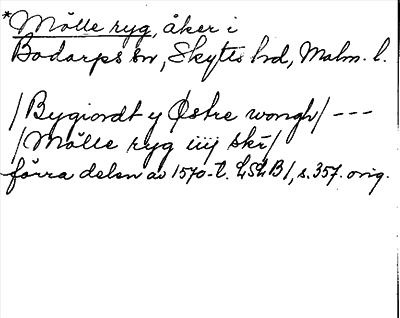 *Mölle ryg, åker i
Bodarps sn, Skytts hd, Malm. l.
/Bygiordt y Østre wongh/ ---
/Mölle ryg iiij skr/
förra delen av 1570-t. LSLB1, s. 357. orig.